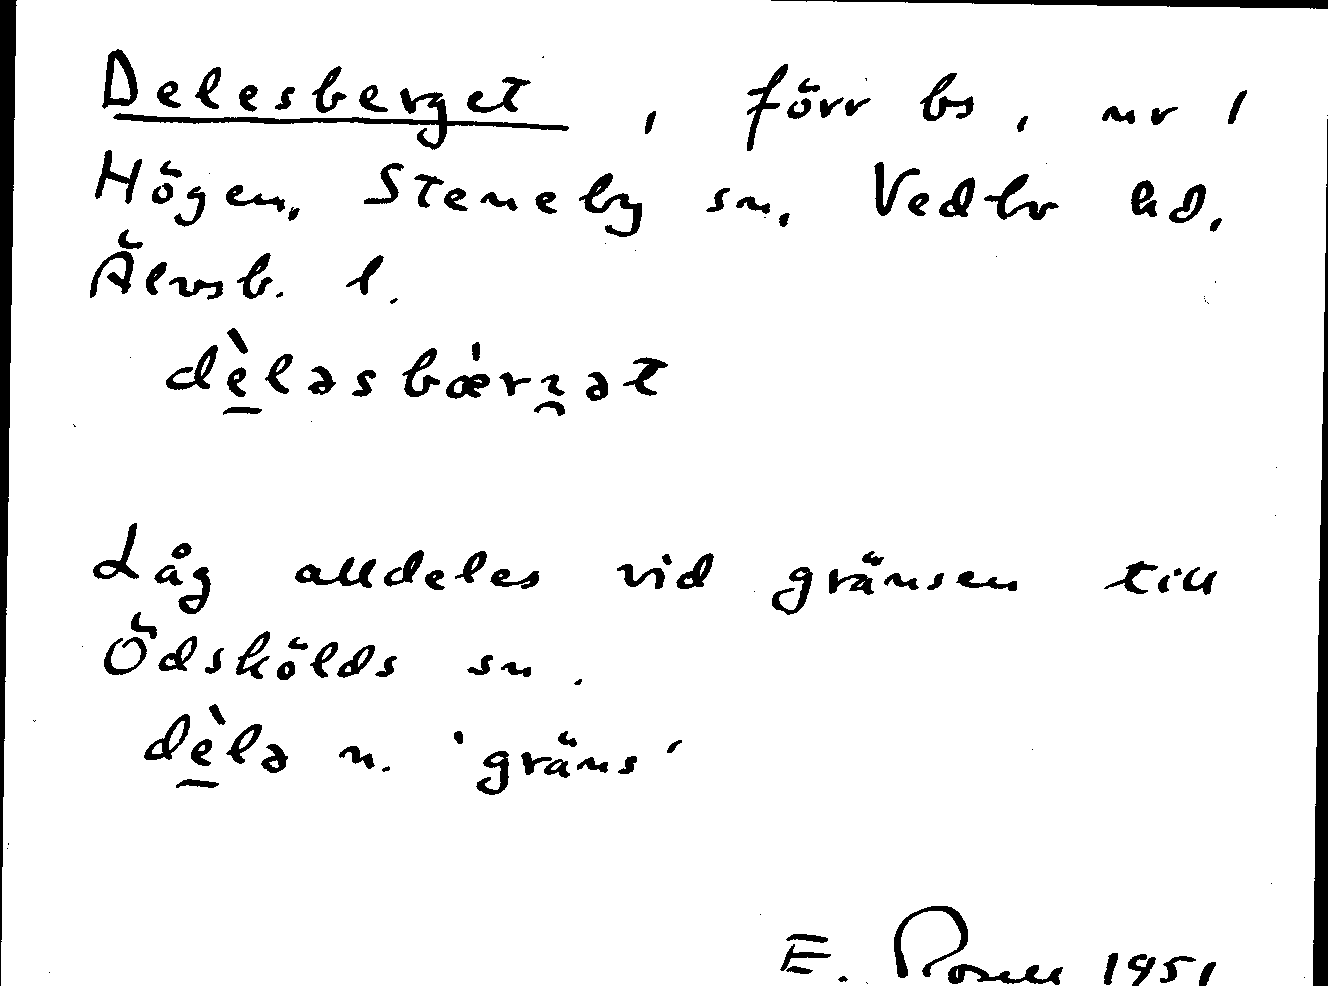 Delesberget, förr bs, nr 1
Högen, Steneby sn, Vedbo hd,
Älvsb. l.
dè̱ləsbæ̀rʒ̯ət
Låg alldeles vid gränsen till
Ödskölds sn.
dè̱lə n. 'gräns'
E. Rosell 1951